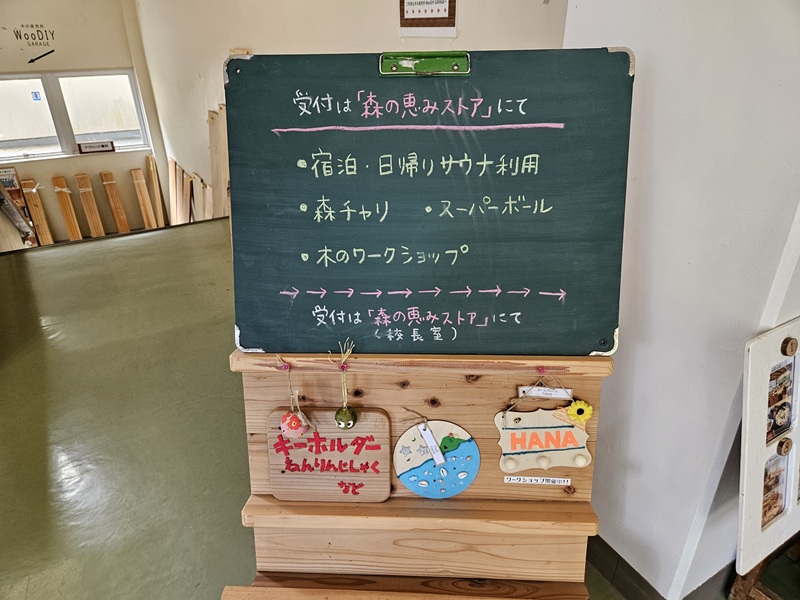 WooDIY
GARAGE
受付は「森の恵みストア」にて
・宿泊・日帰りサウナ利用
・森チャリ ・スーパーボール
・木のワークショップ
→→→→→→→→→
受付は「森の恵みストア」にて
(校長室)
キーホルダー
ねんりんじしゃく
など
HANA
ワークショップ開催中!!